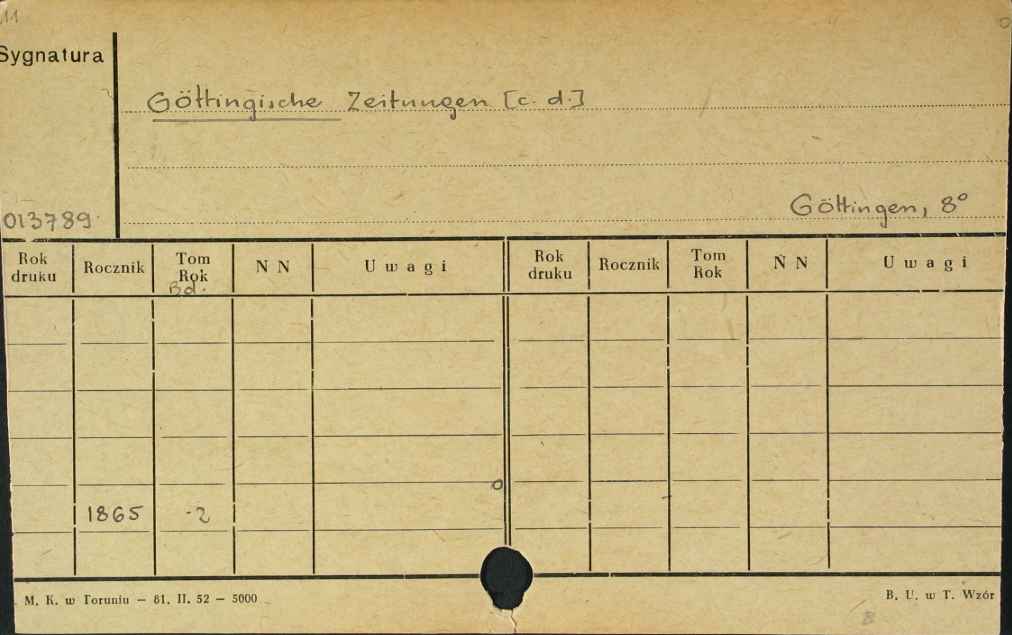 11
Sygnatura
Göttingische Zeitungen [c. d.]
013789
Göttingen, 8°
Rok druku Rocznik Tom Rok Bd. N N Uwagi Rok druku Rocznik Tom Rok N N Uwagi
1865 -2
M. K. w Toruniu — 81. II. 52 — 5000
B. U. w T. Wzór